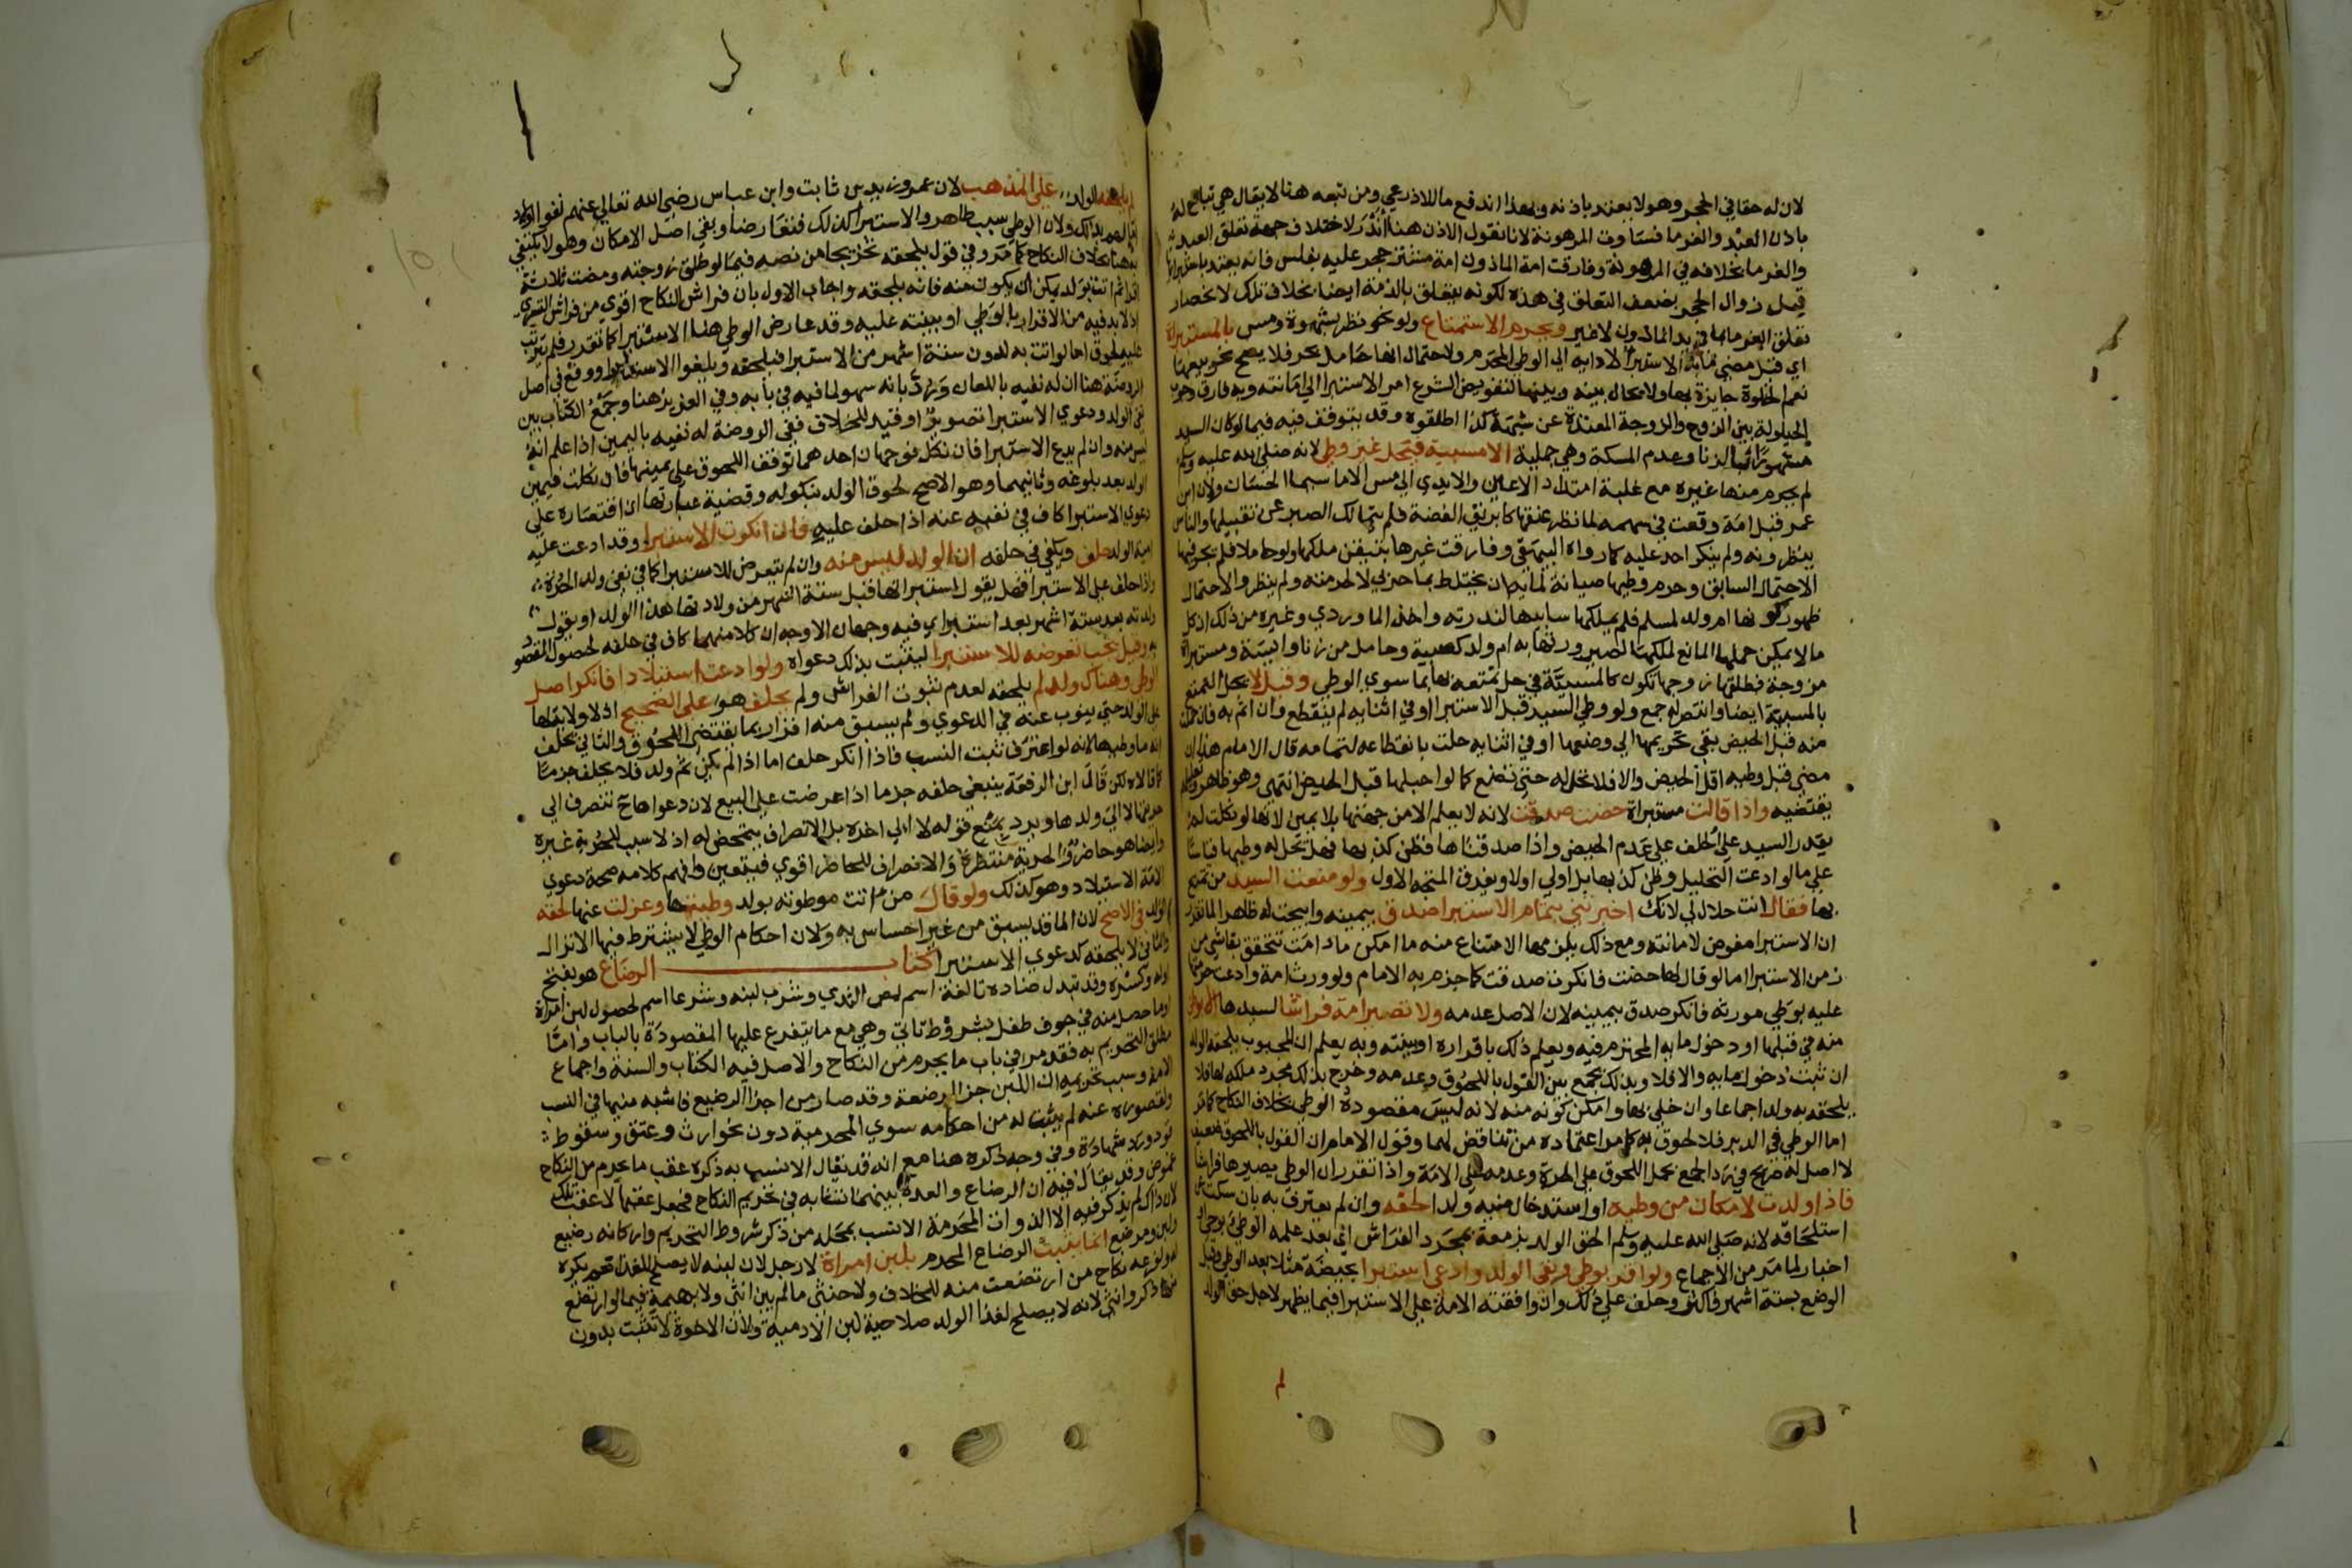 لان له حقا في الحجر وهو لا يعتد باذنه وبهذا اندفع ما للاذرعي ومن تبعه هنا لا يقال هي تباع له
باذن العبد والغرما فساوت المرهونة لانا نقول الاذن هنا اندر لاختلاف جهة تعلق العبد
والغرما بخلافه في المرهونة وفارقت امة الماذون امة مشتر حجر عليه بفلس فانه يعتد باستبرائها
قبل زوال الحجر بضعف التعلق في هذه لكونه يتعلق بالذمة ايضا بخلاف تلك لانحصار
تعلق الغرما بما في يد الماذون لا غير ويحرم الاستمتاع ولو نحو نظر بشهوة ومس بالمستبراة
اي قبل مضي ما به الاستبرا لادايه الى الوطي المحرم ولاحتمال انها حامل بحر فلا يصح نحو بيعها
نعم الخلوة جايزة بها ولا يحال بينه وبينها لتفويض الشرع امر الاستبرا الى امانته وبه فارق وجوب
الحيلولة بين الزوج والزوجة المعتدة عن شبهة كذا اطلقوه وقد يتوقف فيه فيما لو كان السيد
مشهورا بالزنا وعدم المسكة وهي جميلة الا مسبية فيحل غير وطي لانه صلى الله عليه وسلم
لم يحرم منها غيره مع غلبة امتداد الاعين والايدي الى مس الاما سيما الحسان ولان ابن
عمر قبل امة وقعت في سهمه لما نظر عنقها كابريق الفضة فلم يتمالك الصبر عن تقبيلها والناس
ينظرونه ولم ينكر احد عليه كما رواه البيهقي وفارقت غيرها بتيقن ملكها ولو حاملا فلم تجر فيها
الاحتمال السابق وحرم وطيها صيانة لمايه ان يختلط بما حربي لا لحرمته ولم ينظر والاحتمال
ظهور كونها ام ولد لمسلم فلم يملكها سابيها لندرته واخذ الماوردي وغيره من ذلك ان كل
ما لا يمكن حملها المانع لملكها لصيرورتها به ام ولد كصبية وحامل من زنا وايسة ومستبراة
مزوجة فطلقها زوجها تكون كالمسبية في حل تمتعه بها بما سوى الوطي وقيل لا يحل التمتع
بالمسبية ايضا وانتصر له جمع ولو وطي السيد قبل الاستبرا او في اثنايه لم ينقطع وان اثم به فان حملت
منه قبل الحيض بقي تحريمها الى وضعها او في اثنايه حلت بانقطاعه لتمامه قال الامام هذا ان
مضى قبل وطيه اقل الحيض والا فلا تحل له حتى تضع كما لو احبلها قبل الحيض انتهى وهو ظاهر
يقتضيه واذا قالت مستبراة حضت صدقت لانه لا يعلم الا من جهتها بلا يمين لانها لو نكلت لم
يقدر السيد على الحلف على عدم الحيض واذا صدقناها فظن كذبها فهل تحل له وطيها قياسا
على ما لو ادعت التحليل وظن كذبها بل اولى اولا ويفرق المتجه الاول ولو منعت السيد من تمتع
بها فقال انت حلال لي لانك اخبرتني بتمام الاستبرا صدق بيمينه وابيحت له ظاهرا لما تقرر
ان الاستبرا مفوض لامانته ومع ذلك يلزمها الامتناع منه ما امكن مادامت تتحقق بقا شي من
زمن الاستبرا اما لو قال لها حضت فانكرت صدقت كما جزم به الامام ولو ورث امة وادعت حرمتها
عليه بوطي مورثه فانكر صدق بيمينه لان الاصل عدمه ولا تصير امة فراشا لسيدها الا بوطي
منه في قبلها او دخول مايه المحترم فيه ويعلم ذلك باقراره او بينته وبه يعلم ان المجبوب يلحقه الولد
ان ثبت دخول مايه والا فلا وبذلك يجمع بين القول باللحوق وعدمه وخرج بذلك مجرد ملكه لها فلا
يلحقه به ولد اجماعا وان خلى بها وامكن كونه منه لانه ليس مقصوده الوطي بخلاف النكاح كما مر
اما الوطي في الدبر فلا لحوق به كما مر اعتماده من تناقض لهما وقول الامام ان القول باللحوق ضعيف
لا اصل له صريح في رد الجمع بحمل اللحوق على الحرة وعدمه على الامة واذا تقرر ان الوطي يصيرها فراشا
فاذا ولدت لامكان من وطيه او استدخال منيه ولدا لحقه وان لم يعترف به بان سكت عن
استلحاقه لانه صلى الله عليه وسلم الحق الولد بزمعة بمجرد الفراش اي بعد علمه الوطي بوحي او
اخبار لما مر من الاجماع ولو اقر بوطي ونفى الولد وادعى استبرا بحيضة مثلا بعد الوطي وقبل
الوضع بستة اشهر فاكثر وحلف على ذلك وان وافقته الامة على الاستبرا فيما يظهر لاجل حق الولد
لم
لم يلحقه الولد على المذهب لان عمر وزيد بن ثابت وابن عباس رضي الله تعالى عنهم نفوا اولاد
اما لهم بذلك ولان الوطي سبب ظاهر والاستبرا كذلك فتعارضا وبقي اصل الامكان وهو لا يكتفى
به هنا بخلاف النكاح كما مر وفي قول يلحقه تخريجا من نصه فيما لو طلق زوجته ومضت ثلاثة
اقرا ثم اتت بولد يمكن ان يكون منه فانه يلحقه واجاب الاول بان فراش النكاح اقوى من فراش التسري
اذ لا بد فيه من الاقرار بالوطي او بينته عليه وقد عارض الوطي هنا الاستبرا كما تقرر فلم يترتب
عليه لحوق اما لو اتت به لدون ستة اشهر من الاستبرا فيلحقه ويلغوا الاستبرا ووقع في اصل
الروضة هنا ان له نفيه باللعان ورد بانه سهو لما فيه في بابه وفي العزيز هنا وجمع الكتاب بين
نفي الولد ودعوى الاستبرا تصوير او قيد للخلاف ففي الروضة له نفيه باليمين اذا علم انه
ليس منه وان لم يدع الاستبرا فان نكل فوجهان احدهما توقف اللحوق على يمينها فان نكلت فيمين
الولد بعد بلوغه وثانيهما وهو الاصح لحوق الولد بنكوله وقضية عبارتها ان اقتصاره على
دعوى الاستبرا كاف في نفيه عنه اذا حلف عليه فان انكرت الاستبرا وقد ادعت عليه
امية الولد حلف ويكفي في حلفه ان الولد ليس منه وان لم يتعرض للاستبرا كما في نفي ولد الحرة
واذا حلف على الاستبرا فهل يقول استبراتها قبل ستة اشهر من ولادتها هذا الولد او يقول
ولدته بعد ستة اشهر بعد استبراي فيه وجهان الاوجه ان كلا منهما كاف في حلفه لحصول المقصود
به وقيل يجب تعرضه للاستبرا ليثبت بذلك دعواه ولو ادعت استيلادا فانكر اصل
الوطي وهناك ولد لم يلحقه لعدم ثبوت الفراش ولم يحلف هو على الصحيح اذ لا ولاية لها
على الولد حتى ينوب عنه في الدعوى ولم يسبق منه اقرار بما يقتضي اللحوق والثاني يحلف
انه ما وطيها لانه لو اعترف ثبت النسب فاذا انكر حلف اما اذا لم يكن ثم ولد فلا يحلف جزما
كما قالاه لكن قال ابن الرفعة ينبغي حلفه جزما اذا عرضت على البيع لان دعواها ح تنصرف الى
حريتها لا الى ولدها ويرد بمنع قوله لا الى اخره بل الانصراف يتمحض له اذ لا سبب للحرية غيره
وايضا هو حاضر والحرية منتظرة والانصراف للحاضر اقوى فيتعين وافهم كلامه صحة دعوى
الامة الاستيلاد وهو كذلك ولو قال من اتت موطوته بولد وطيتها وعزلت عنها لحقه
الولد في الاصح لان الما قد يسبق من غير احساس به ولان احكام الوطي لا يشترط فيها الانزال
والثاني لا يلحقه كدعوى الاستبرا كتاب الرضاع هو بفتح
اوله وكسره وقد تبدل ضاده تا لغة اسم لمص الثدي وشرب لبنه وشرعا اسم لحصول لبن امراة
او ما حصل منه في جوف طفل بشروط تاتي وهي مع ما يتفرع عليها المقصودة بالباب واما
مطلق التحريم به فقد مر في باب ما يحرم من النكاح والاصل فيه الكتاب والسنة واجماع
الامة وسبب تحريمه ان اللبن جزا لمرضعة وقد صار من اجزا الرضيع فاشبه منيها في النسب
ولقصوره عنه لم يثبت له من احكامه سوى المحرمية دون نحو ارث وعتق وسقوط
قود ورد شهادة وفي وجه ذكره هنا مع انه قد يقال الانسب به ذكره عقب ما يحرم من النكاح
غموض وقد يقال فيه ان الرضاع والعدة بينهما تشابه في تحريم النكاح فجعل عقبها لا عقب تلك
لان ذاك لم يذكر فيه الا الذوات المحرمة الانسب بمحله من ذكر شروط التحريم واركانه رضيع
ولبن ومرضع انما يثبت الرضاع المحرم بلبن امراة لا رجل لان لبنه لا يصلح للغذا نعم يكره
له ولفرعه نكاح من ارتضعت منه للخلاف ولا خنثى ما لم يبن انثى ولا بهيمة فيما لو ارتضع
منها ذكر وانثى لانه لا يصلح لغذا الولد صلاحية لبن الادمية ولان الاخوة لا تثبت بدون